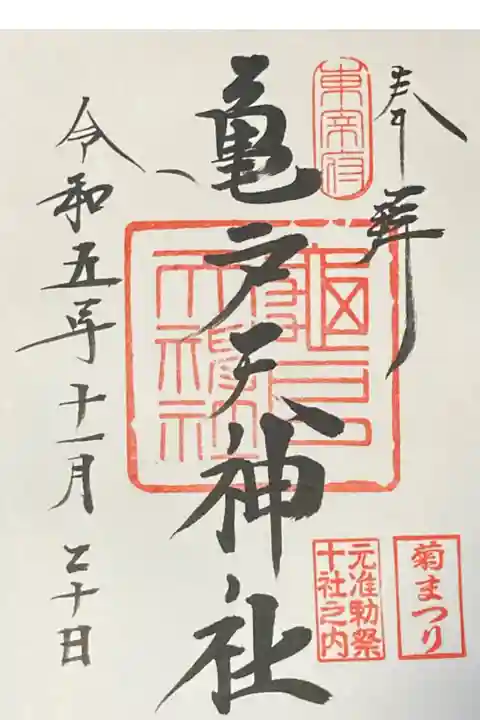 奉拝
東宰府
亀戸天神社
元准勅祭
十社之内
菊まつり
令和五年十一月二十日